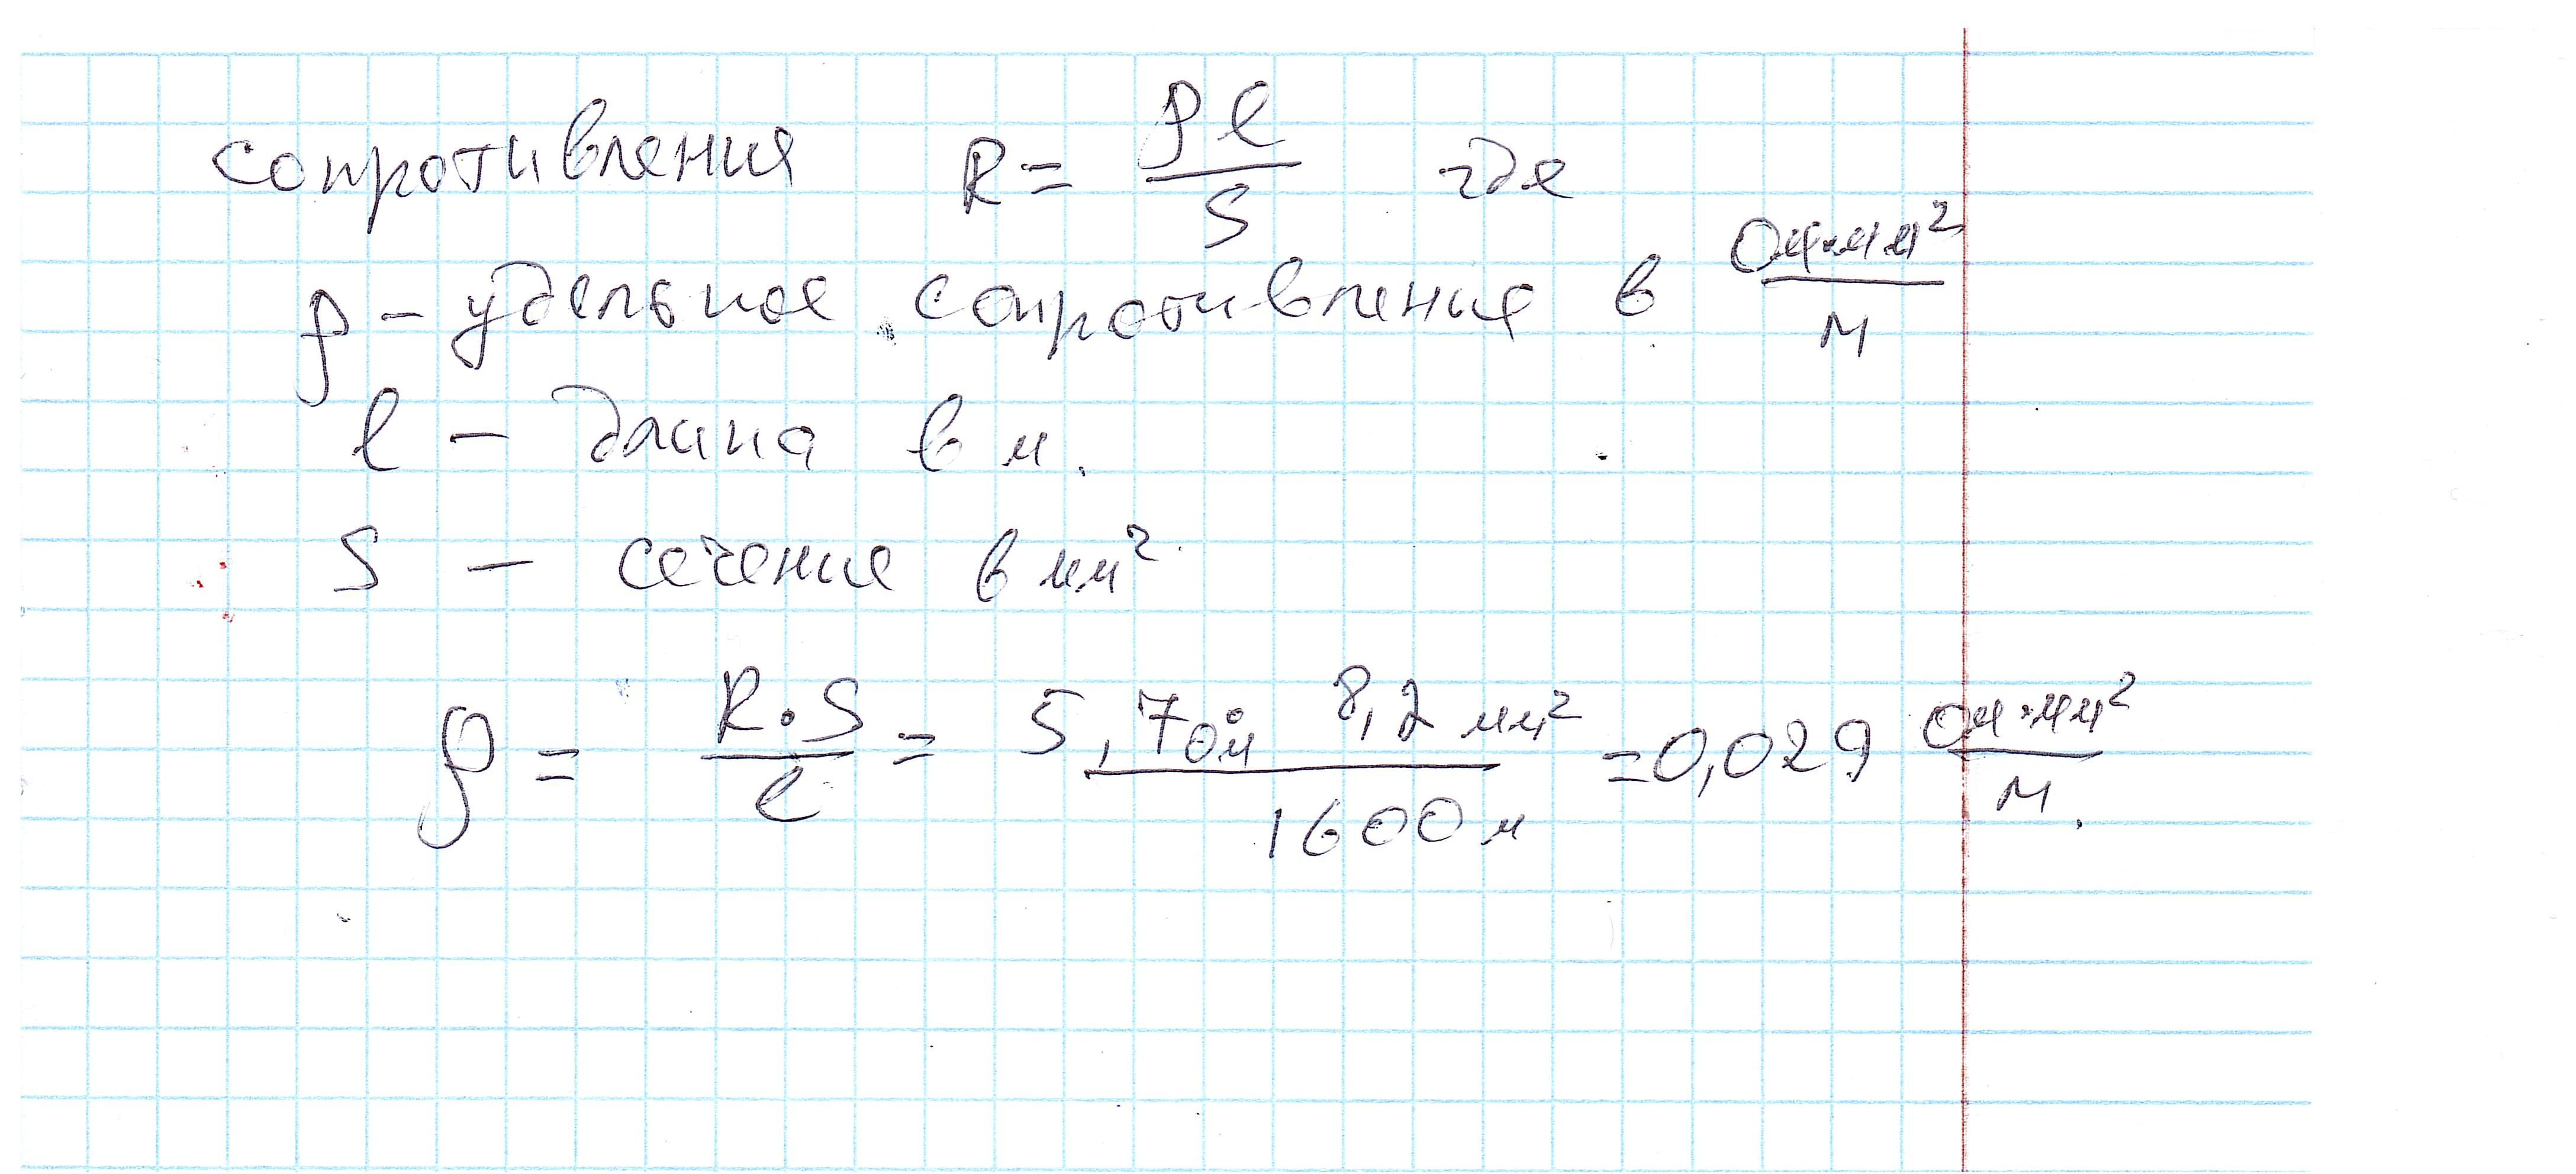 сопротивления R = ρl/S где
ρ – удельное сопротивление в Ом·мм²/м
l – длина в м.
S – сечение в мм²
ρ = R·S/l = 5,7 Ом 8,2 мм²/1600 м = 0,029 Ом·мм²/м.